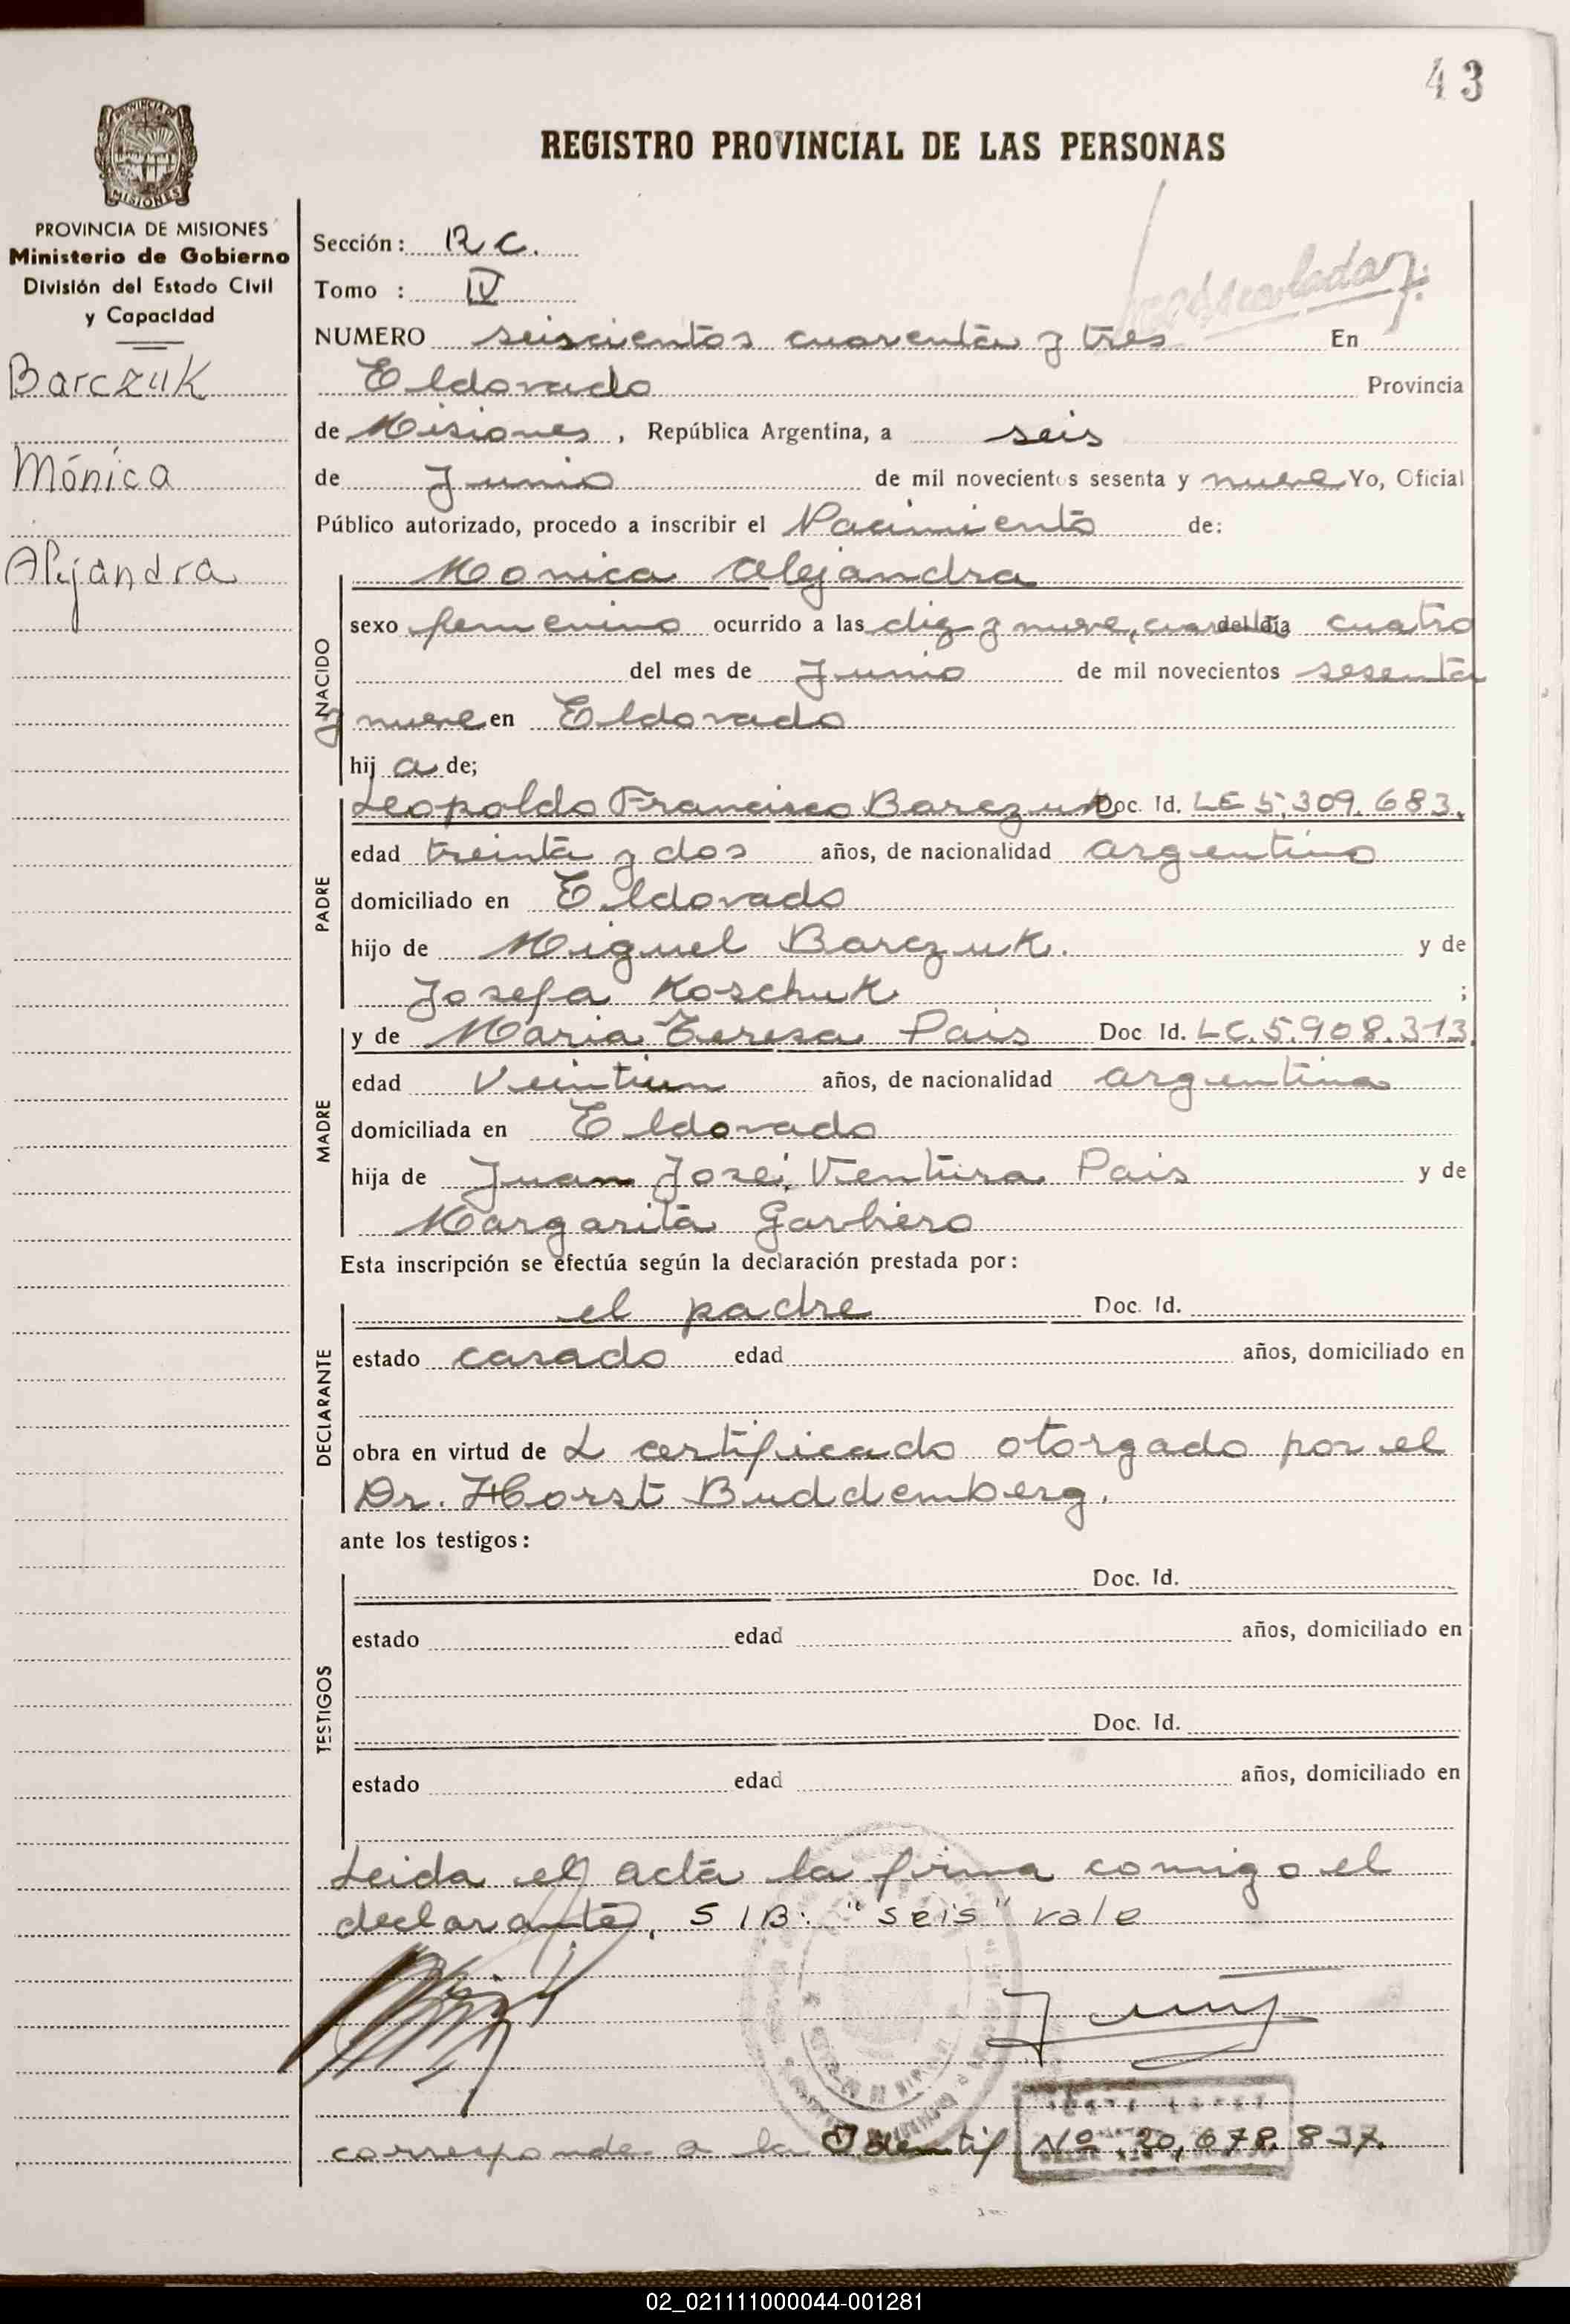 43
REGISTRO PROVINCIAL DE LAS PERSONAS
PROVINCIA DE MISIONES
Ministerio de Gobierno
División del Estado Civil
y Capacidad
Barczuk
Mónica
Alejandra
Sección: R C.
Tomo : IV
NUMERO seiscientos cuarenta y tres En
Eldorado Provincia
de Misiones, República Argentina, a seis
de Junio de mil novecientos sesenta y nueve Yo, Oficial
Público autorizado, procedo a inscribir el Nacimiento de:
NACIDO
Monica Alejandra
sexo femenino ocurrido a las diez y nueve, del día cuatro
del mes de Junio de mil novecientos sesenta
y nueve en Eldorado
hij a de;
PADRE
Leopoldo Francisco Barczuk Doc. Id. LE 5,309.683.
edad treinta y dos años, de nacionalidad argentino
domiciliado en Eldorado
hijo de Miguel Barczuk. y de
Josefa Koschuk ;
MADRE
y de Maria Teresa Pais Doc Id. LC.5.908.313
edad Veintiun años, de nacionalidad argentina
domiciliada en Eldorado
hija de Juan José Ventura Pais y de
Margarita Garhiero
Esta inscripción se efectúa según la declaración prestada por:
DECLARANTE
el padre Doc. Id.
estado casado edad años, domiciliado en
obra en virtud de L certificado otorgado por el
Dr. Horst Buddemberg.
ante los testigos:
TESTIGOS
Doc. Id.
estado edad años, domiciliado en
Doc. Id.
estado edad años, domiciliado en
Leida el acta la firma comigo el
declarante, S/B: "seis" vale
corresponde a la Identif Nº 20,678.837.
02_021111000044-001281